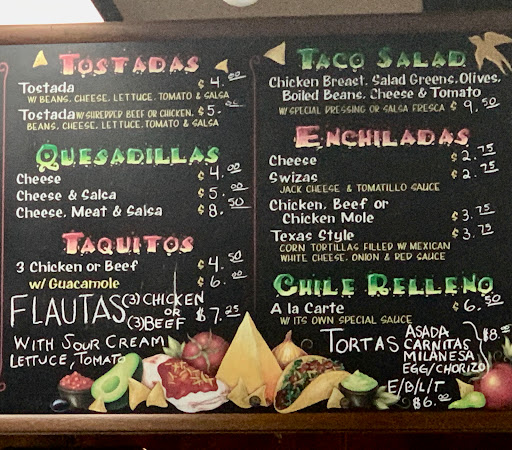 TOSTADAS
Tostada $4.00
W/ BEANS, CHEESE, LETTUCE, TOMATO & SALSA
Tostada W/ SHREDDED BEEF OR CHICKEN, $5.00
BEANS, CHEESE, LETTUCE, TOMATO & SALSA
QUESADILLAS
Cheese $4.00
Cheese & Salsa $5.00
Cheese, Meat & Salsa $8.50
TAQUITOS
3 Chicken or Beef $4.50
w/ Guacamole $6.00
FLAUTAS (3) CHICKEN
OR $7.25
(3) BEEF
WITH SOUR CREAM
LETTUCE, TOMATO
TACO SALAD
Chicken Breast, Salad Greens, Olives,
Boiled Beans, Cheese & Tomato
W/ SPECIAL DRESSING OR SALSA FRESCA $9.50
ENCHILADAS
Cheese $2.75
Swizas $2.75
JACK CHEESE & TOMATILLO SAUCE
Chicken, Beef or
Chicken Mole $3.75
Texas Style $3.75
CORN TORTILLAS FILLED W/ MEXICAN
WHITE CHEESE, ONION & RED SAUCE
CHILE RELLENO
A la Carte $6.50
W/ ITS OWN SPECIAL SAUCE
TORTAS ASADA
CARNITAS
MILANESA
EGG/CHORIZO
E/B/L/T
$6.00